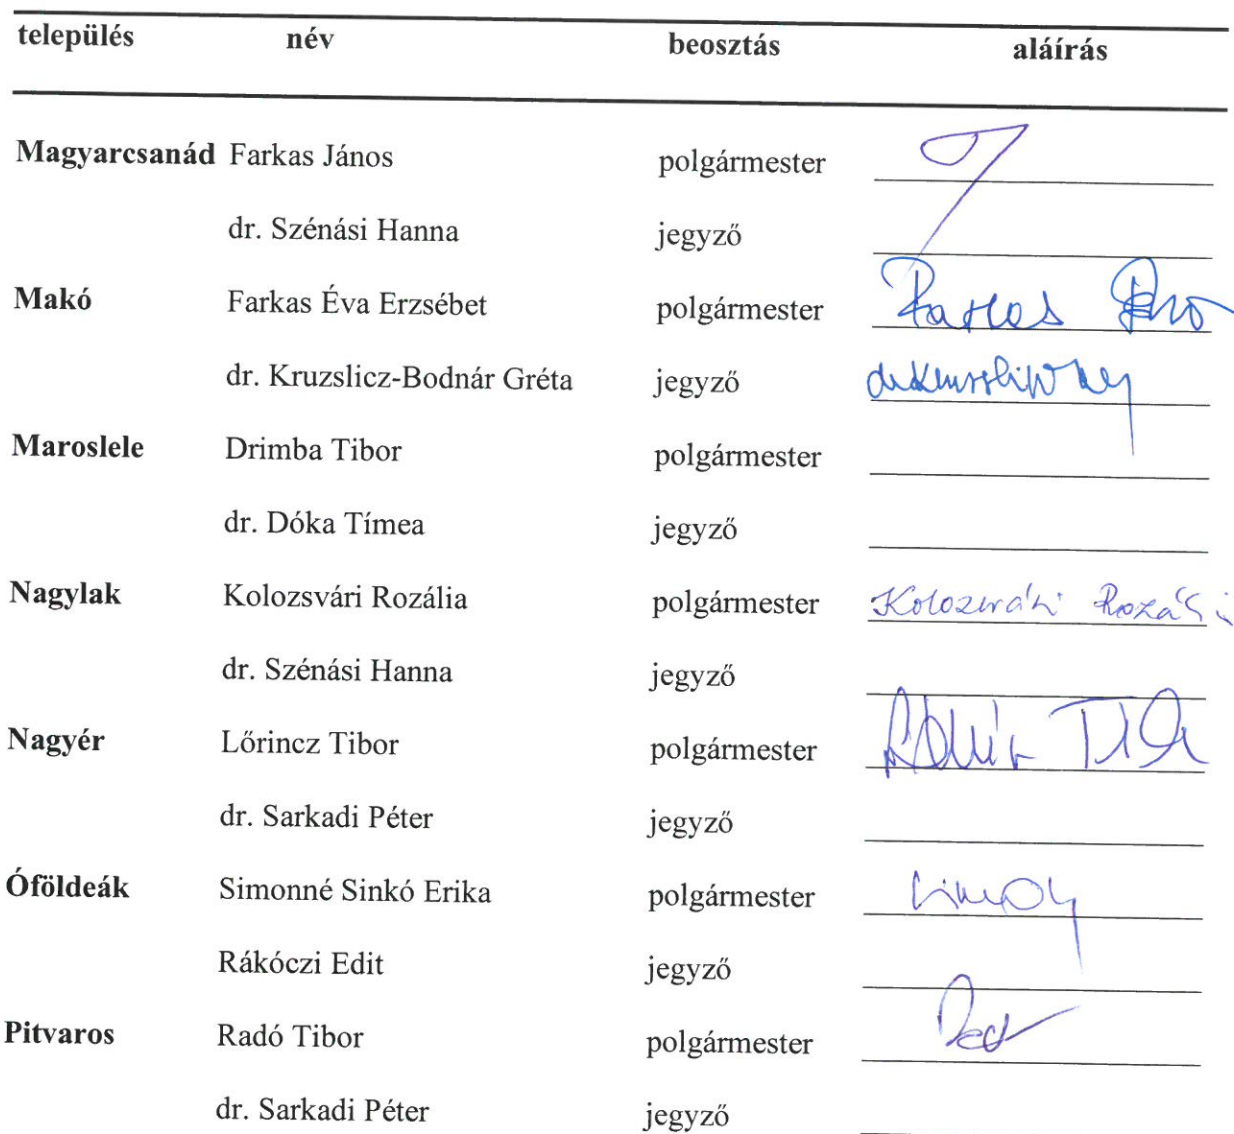 település név beosztás aláírás
Magyarcsanád Farkas János polgármester
dr. Szénási Hanna jegyző
Makó Farkas Éva Erzsébet polgármester Farkas
dr. Kruzslicz-Bodnár Gréta jegyző
Maroslele Drimba Tibor polgármester
dr. Dóka Tímea jegyző
Nagylak Kolozsvári Rozália polgármester Kolozsvári Rozália
dr. Szénási Hanna jegyző
Nagyér Lőrincz Tibor polgármester
dr. Sarkadi Péter jegyző
Óföldeák Simonné Sinkó Erika polgármester
Rákóczi Edit jegyző
Pitvaros Radó Tibor polgármester
dr. Sarkadi Péter jegyző